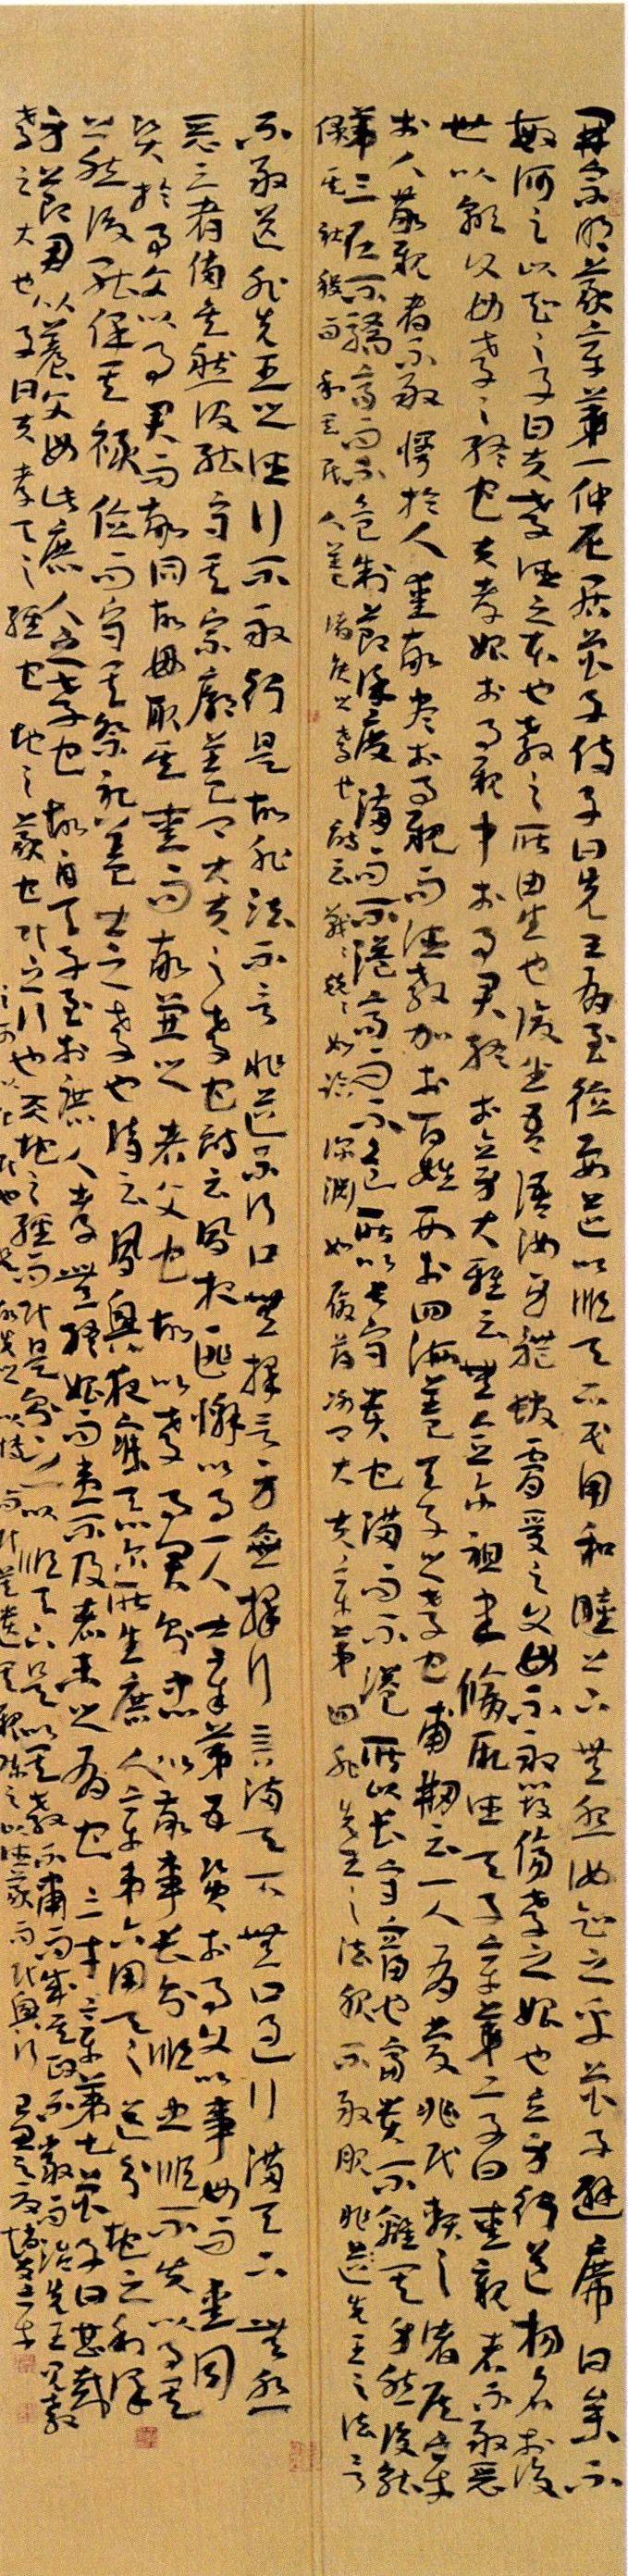 開宗明義章第一仲尼居曾子侍子曰先王有至德要道以順天下民用和睦上下無怨汝知之乎曾子避席曰參不
敏何足以知之子曰夫孝德之本也教之所由生也復坐吾語汝身體髮膚受之父母不敢毀傷孝之始也立身行道揚名於後
世以顯父母孝之終也夫孝始於事親中於事君終於立身大雅云無念爾祖聿脩厥德天子章第二子曰愛親者不敢惡
於人敬親者不敢慢於人愛敬盡於事親而德教加於百姓刑於四海蓋天子之孝也甫刑云一人有慶兆民賴之諸侯章
第三在上不驕高而不危制節謹度滿而不溢高而不危所以長守貴也滿而不溢所以長守富也富貴不離其身然後能
保其社稷而和其民人蓋諸侯之孝也詩云戰戰兢兢如臨深淵如履薄冰卿大夫章第四非先王之法服不敢服非道先王之法言
不敢道非先王之德行不敢行是故非法不言非道不行口無擇言身無擇行言滿天下無口過行滿天下無怨
惡三者備矣然後能守其宗廟蓋卿大夫之孝也詩云夙夜匪懈以事一人士章第五資於事父以事母而愛同
資於事父以事君而敬同故母取其愛而敬兼之者父也故以孝事君則忠以敬事長則順忠順不失以事其
上然後能保其祿位而守其祭祀蓋士之孝也詩云夙興夜寐無忝爾所生庶人章第六用天之道分地之利謹
身節用以養父母此庶人之孝也故自天子至於庶人孝無終始而患不及者未之有也三才章第七曾子曰甚哉
孝之大也子曰夫孝天之經也地之義也民之行也天地之經而民是則之以順天下是以其教不肅而成其政不嚴而治先王見教
之可以化民也是故先之以博愛而民莫遺其親陳之以德義而民興行